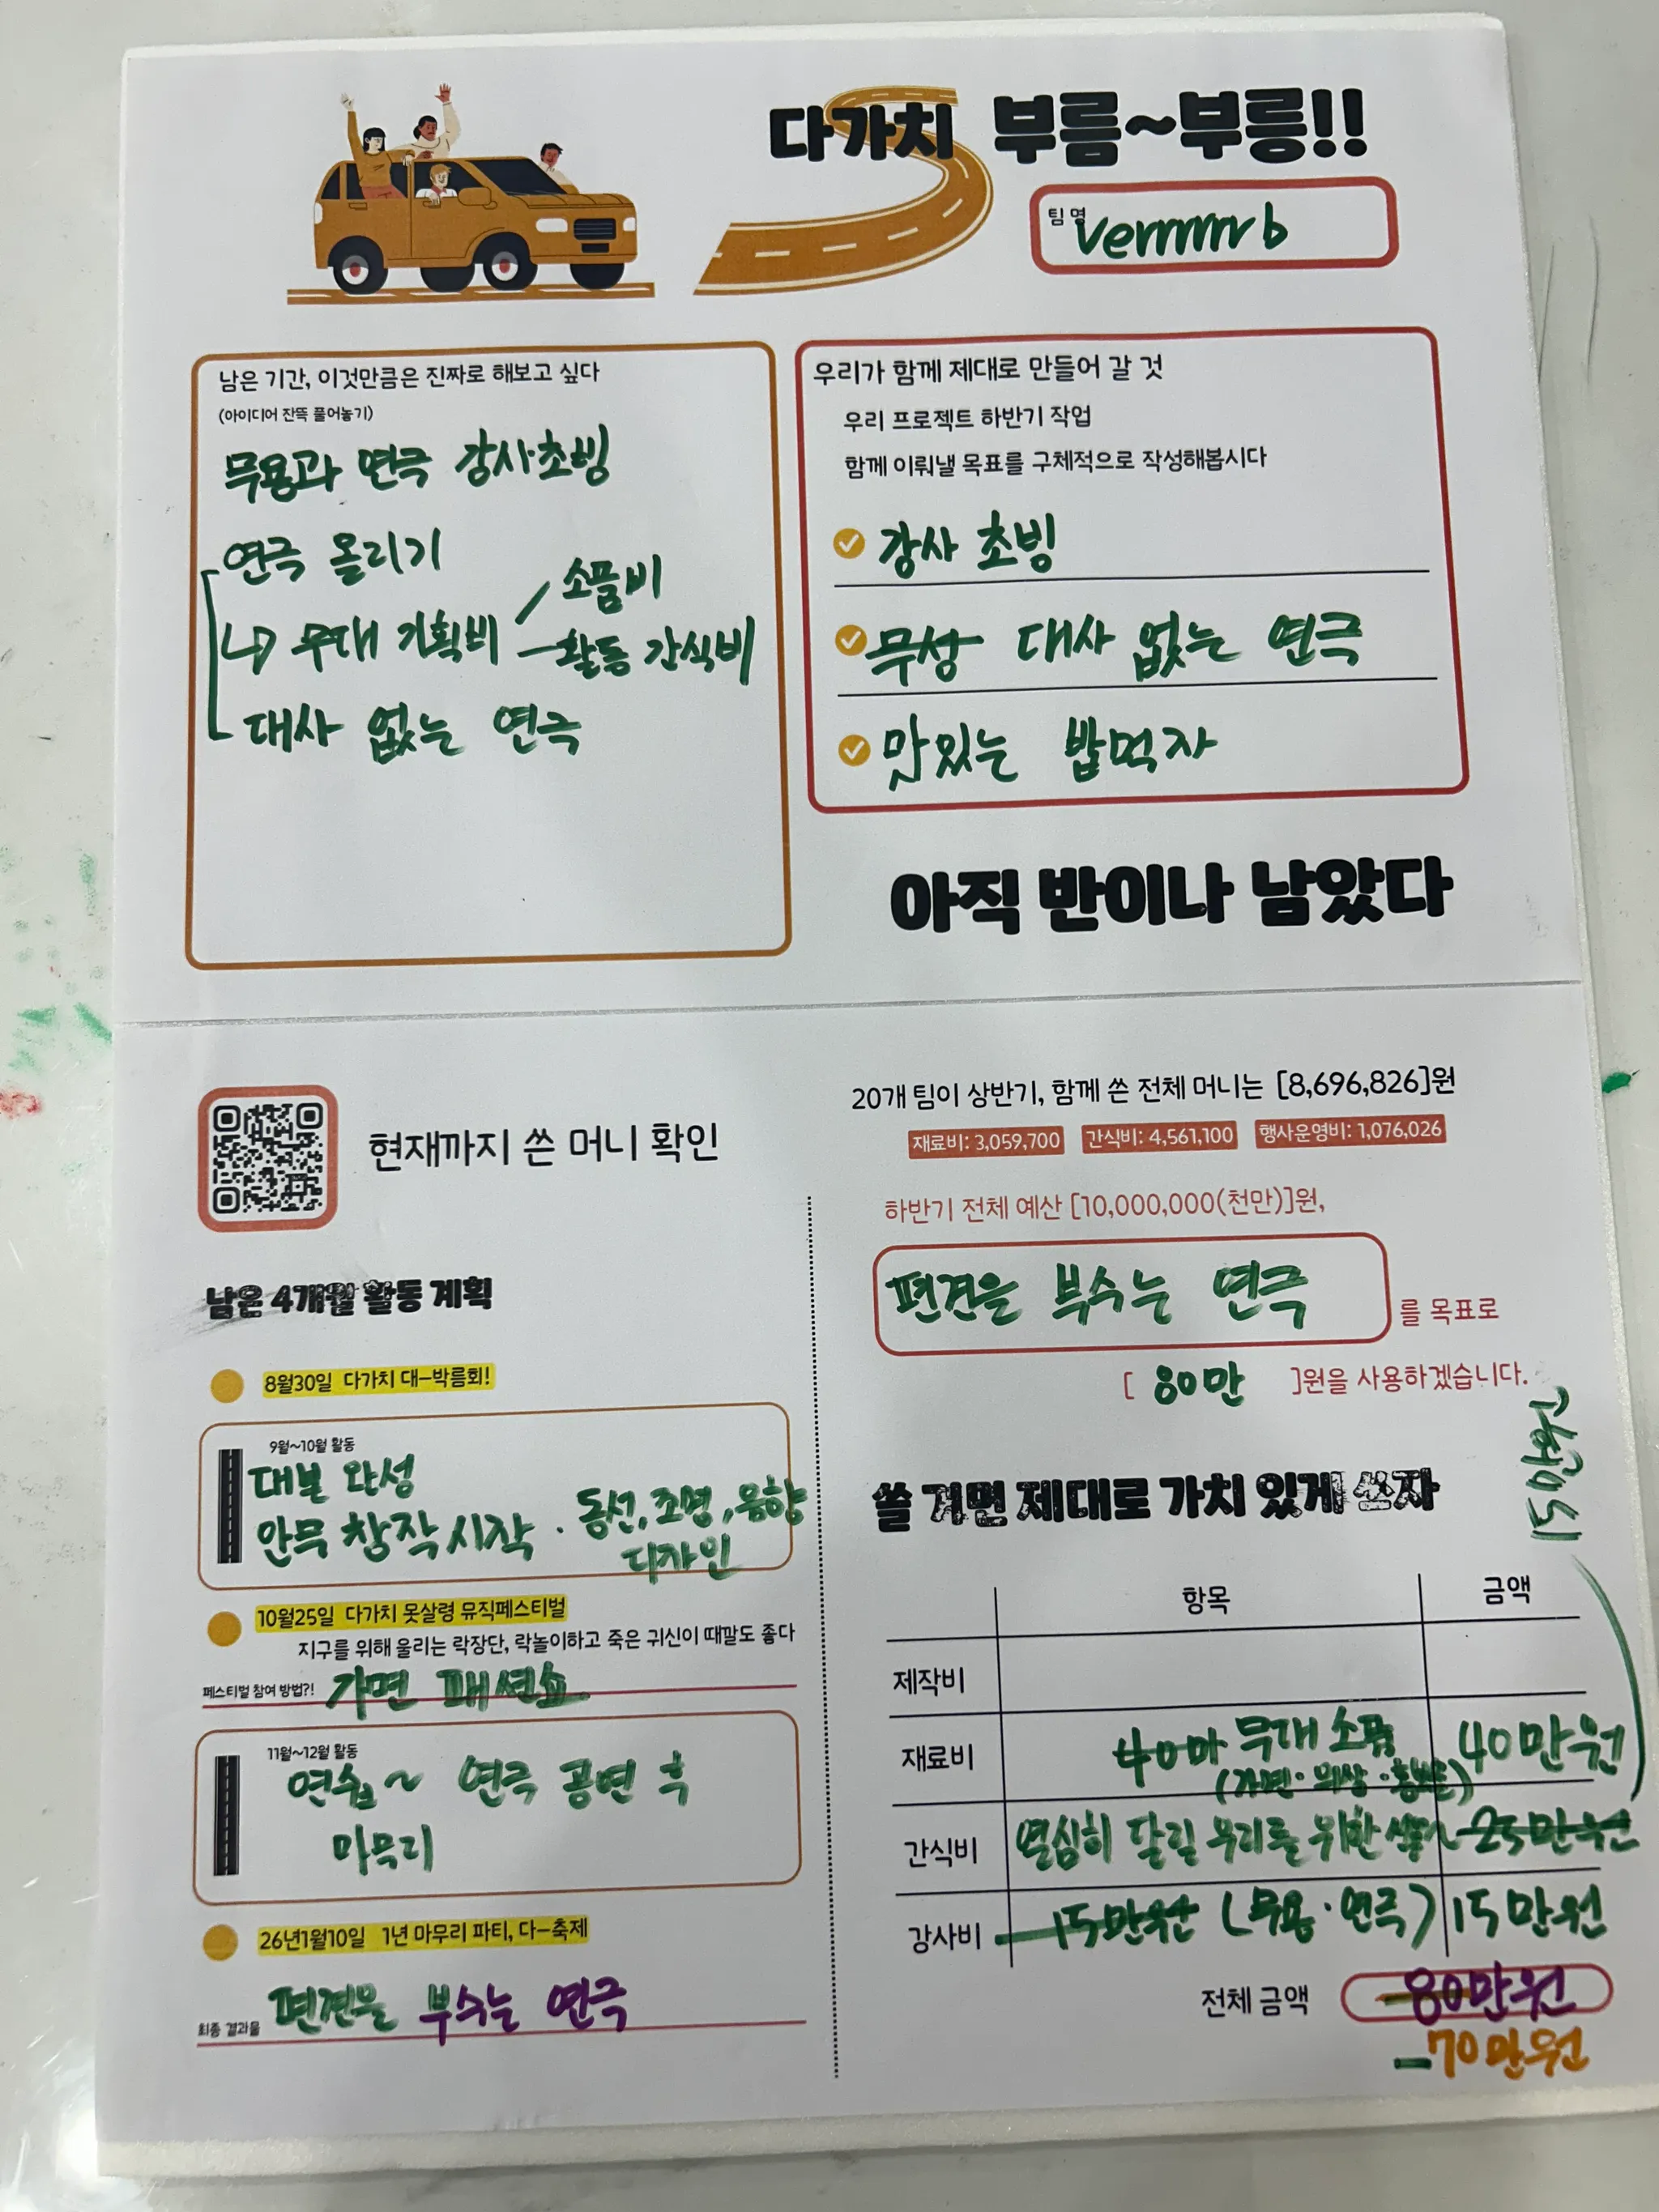 다가치 부름~부릉!!
팀명 vermrrrr b
남은 기간, 이것만큼은 진짜로 해보고 싶다
(아이디어 잔뜩 풀어놓기)
무용과 연극 강사초빙
연극 올리기
소품비
↳ 무대 기획비 - 활동 간식비
대사 없는 연극
우리가 함께 제대로 만들어 갈 것
우리 프로젝트 하반기 작업
함께 이뤄낼 목표를 구체적으로 작성해봅시다
강사 초빙
무상 대사 없는 연극
맛있는 밥먹자
아직 반이나 남았다
현재까지 쓴 머니 확인
20개 팀이 상반기, 함께 쓴 전체 머니는 [8,696,826]원
재료비: 3,059,700 간식비: 4,561,100 행사운영비: 1,076,026
하반기 전체 예산 [10,000,000(천만)]원,
편견을 부수는 연극 를 목표로
[ 80만 ]원을 사용하겠습니다.
남은 4개월 활동 계획
8월30일 다가치 대-박름회!
9월~10월 활동
대본 완성
안무 창작 시작 · 동선, 조명, 음향
디자인
10월25일 다가치 못살령 뮤직페스티벌
지구를 위해 울리는 락장단, 락놀이하고 죽은 귀신이 때깔도 좋다
페스티벌 참여 방법?! 가면 패션쇼
11월~12월 활동
연습 ~ 연극 공연 후
마무리
26년1월10일 1년 마무리 파티, 다-축제
최종 결과물 편견을 부수는 연극
쓸 거면 제대로 가치 있게 쓰자
항목 금액
제작비
재료비 40마 무대 소품 40만원
(가면·의상·)
간식비 열심히 달릴 우리를 위한 25만원
강사비 15만원 (무용·연극) 15만원
전체 금액 80만원
70만원